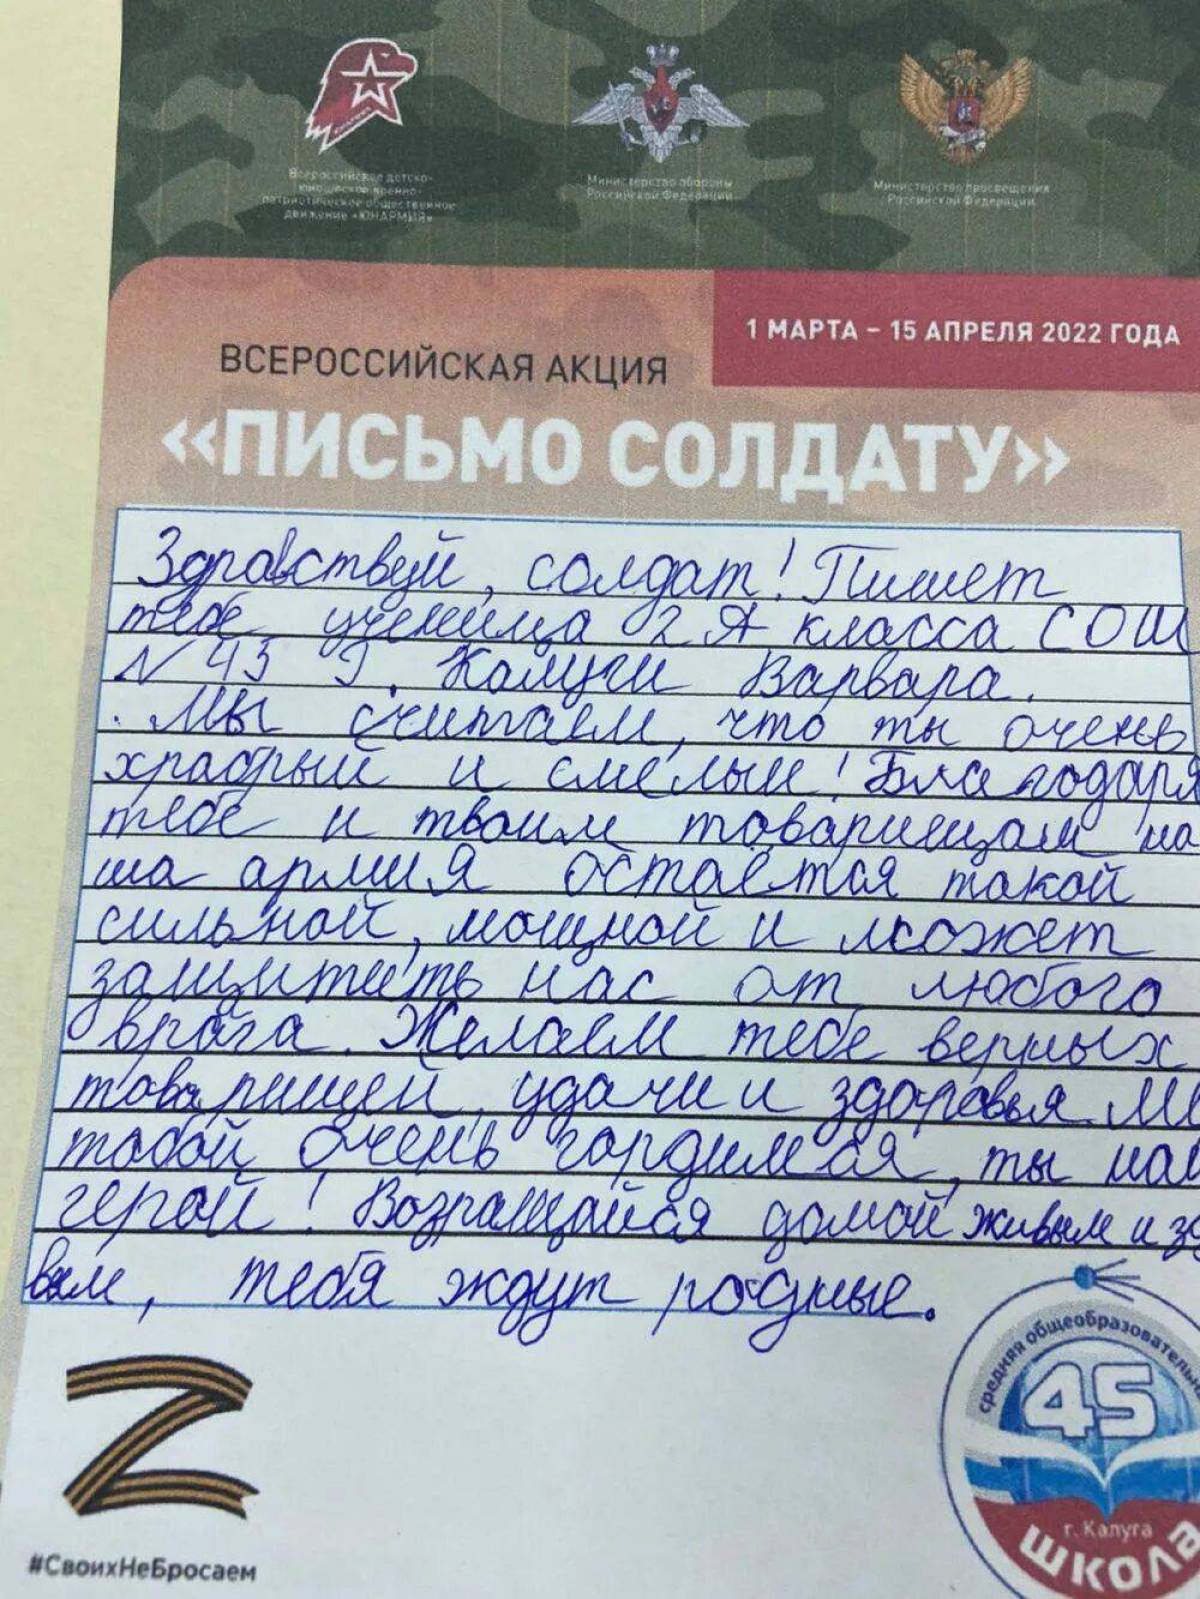 Всероссийское детско-
юношеское военно-
патриотическое общественное
движение «ЮНАРМИЯ»
Министерство обороны
Российской Федерации
Министерство просвещения
Российской Федерации
1 МАРТА – 15 АПРЕЛЯ 2022 ГОДА
ВСЕРОССИЙСКАЯ АКЦИЯ
«ПИСЬМО СОЛДАТУ»
Здравствуй, солдат! Пишет
тебе ученица 2 А класса СОШ
N 45 г. Калуги Варвара.
Мы считаем, что ты очень
храбрый и смелый! Благодаря
тебе и твоим товарищам на
ша армия остаётся такой
сильной, мощной и может
защитить нас от любого
врага. Желаем тебе верных
товарищей, удачи и здоровья. Мы
тобой очень гордимся, ты наш
герой! Возращайся домой живым и здо
вым, тебя ждут родные.
#СвоихНеБросаем
средняя общеобразователь
45
г. Калуга
школа